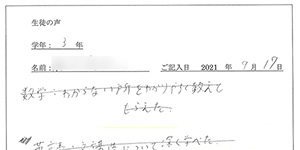 生徒の声
学年： 3 年
名前： ご記入日 2021 年 9 月 17 日
数学：わからない所をわかりやすく教えて
もらえた
について深く学べた